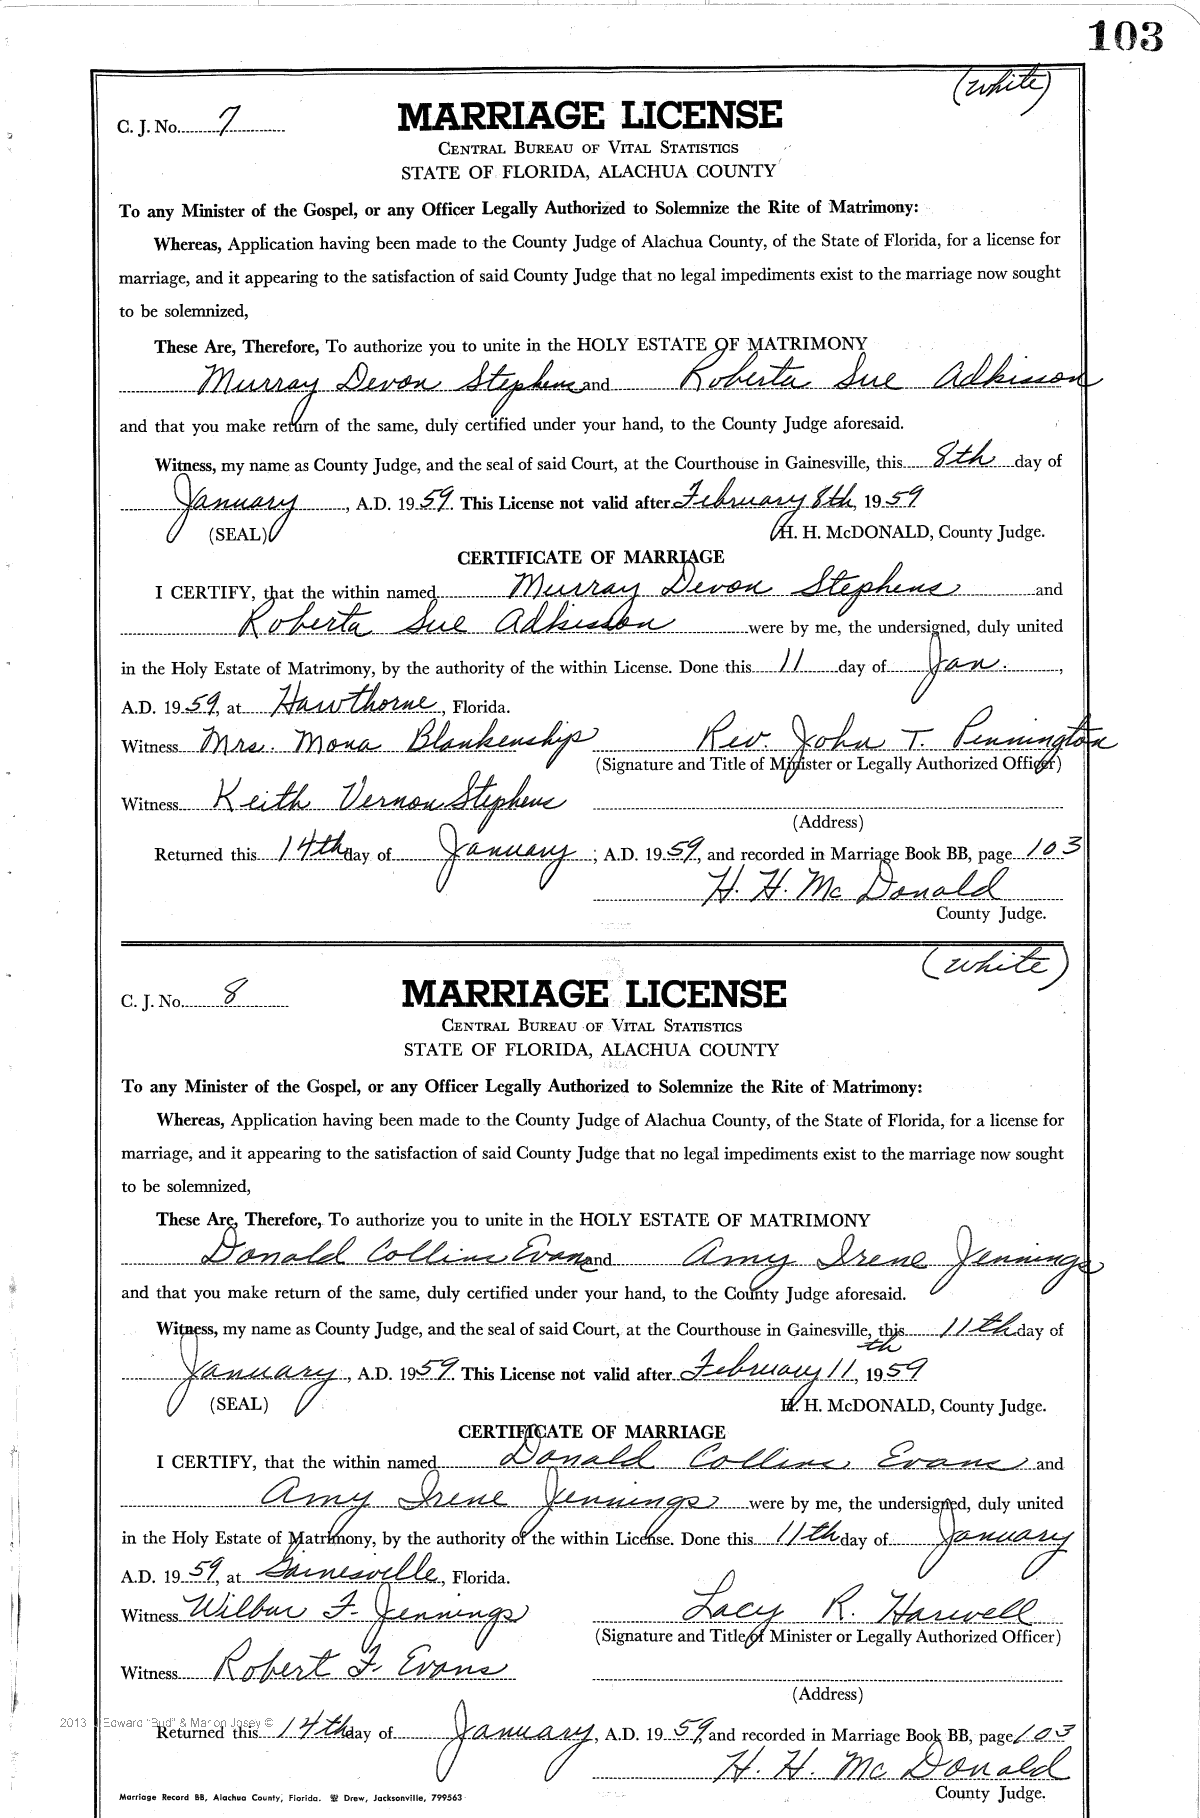 103
(white)
C. J. No. 7
MARRIAGE LICENSE
CENTRAL BUREAU OF VITAL STATISTICS
STATE OF FLORIDA, ALACHUA COUNTY
To any Minister of the Gospel, or any Officer Legally Authorized to Solemnize the Rite of Matrimony:
Whereas, Application having been made to the County Judge of Alachua County, of the State of Florida, for a license for
marriage, and it appearing to the satisfaction of said County Judge that no legal impediments exist to the marriage now sought
to be solemnized,
These Are, Therefore, To authorize you to unite in the HOLY ESTATE OF MATRIMONY
Murray Devon Stephens and Roberta Sue Adkisson
and that you make return of the same, duly certified under your hand, to the County Judge aforesaid.
Witness, my name as County Judge, and the seal of said Court, at the Courthouse in Gainesville, this 8th day of
January, A.D. 1959. This License not valid after February 8th, 1959
(SEAL) H. H. McDONALD, County Judge.
CERTIFICATE OF MARRIAGE
I CERTIFY, that the within named Murray Devon Stephens and
Roberta Sue Adkisson were by me, the undersigned, duly united
in the Holy Estate of Matrimony, by the authority of the within License. Done this 11 day of Jan.,
A.D. 1959, at Hawthorne, Florida.
Witness Mrs. Mona Blankenship Rev. John T. Pennington
(Signature and Title of Minister or Legally Authorized Officer)
Witness Keith Vernon Stephens
(Address)
Returned this 14th day of January; A.D. 1959, and recorded in Marriage Book BB, page 103
H. H. McDonald
County Judge.
(white)
C. J. No. 8
MARRIAGE LICENSE
CENTRAL BUREAU OF VITAL STATISTICS
STATE OF FLORIDA, ALACHUA COUNTY
To any Minister of the Gospel, or any Officer Legally Authorized to Solemnize the Rite of Matrimony:
Whereas, Application having been made to the County Judge of Alachua County, of the State of Florida, for a license for
marriage, and it appearing to the satisfaction of said County Judge that no legal impediments exist to the marriage now sought
to be solemnized,
These Are, Therefore, To authorize you to unite in the HOLY ESTATE OF MATRIMONY
Donald Collins Evans and Amy Irene Jennings
and that you make return of the same, duly certified under your hand, to the County Judge aforesaid.
Witness, my name as County Judge, and the seal of said Court, at the Courthouse in Gainesville, this 11th day of
January, A.D. 1959. This License not valid after February 11th, 1959
(SEAL) H. H. McDONALD, County Judge.
CERTIFICATE OF MARRIAGE
I CERTIFY, that the within named Donald Collins Evans and
Amy Irene Jennings were by me, the undersigned, duly united
in the Holy Estate of Matrimony, by the authority of the within License. Done this 11th day of January
A.D. 1959, at Gainesville, Florida.
Witness Wilbur F. Jennings Lacy R. Harwell
(Signature and Title of Minister or Legally Authorized Officer)
Witness Robert F. Evans
(Address)
2013 Edward "Bud" & Marion Josey ©
Returned this 14th day of January, A.D. 1959, and recorded in Marriage Book BB, page 103
H. H. McDonald
Marriage Record BB, Alachua County, Florida. Drew, Jacksonville, 799563
County Judge.